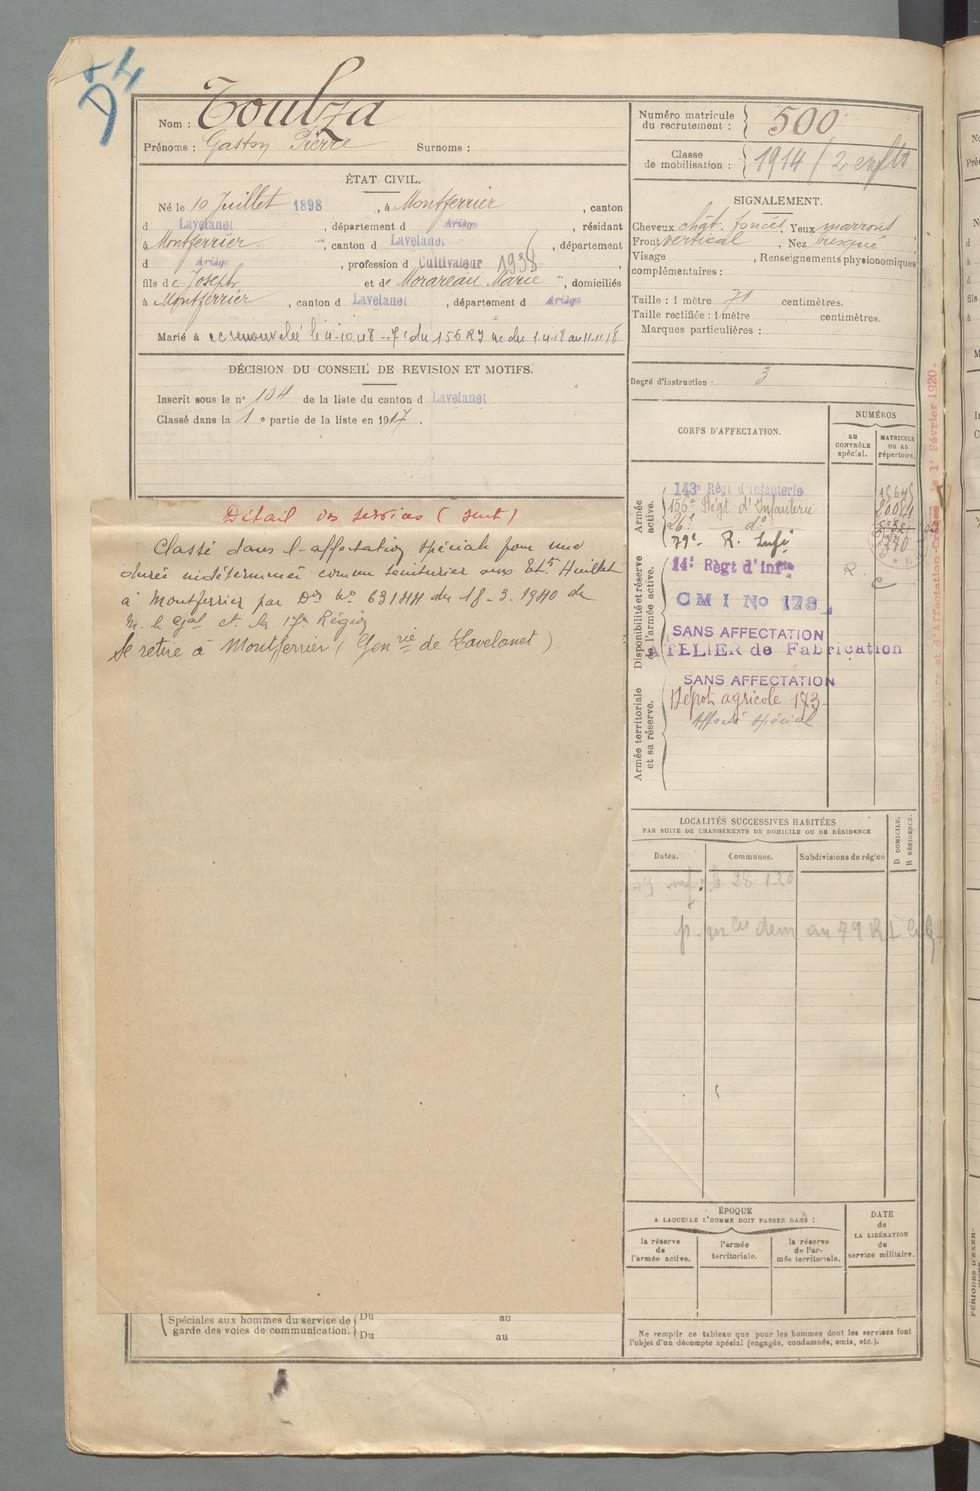 D4
Nom : Toulza
Prénoms : Gaston Pierre Surnoms :
ÉTAT CIVIL.
Né le 10 Juillet 1898, à Montferrier, canton
d Lavelanet, département d Ariège, résidant
à Montferrier, canton d Lavelanet, département
d Ariège, profession d Cultivateur 1938,
fils de Joseph et de Marie, domiciliés
à Montferrier, canton d Lavelanet, département d Ariège
Marié à
DÉCISION DU CONSEIL DE REVISION ET MOTIFS.
Inscrit sous le n° 104 de la liste du canton d Lavelanet
Classé dans la 1e partie de la liste en 1917.
Détail des services (suit)
Classé dans l'affectation spéciale pour une
durée indéterminée comme teinturier aux Ets Huillet
à Montferrier par Don No 6318 HH du 18-3-1940 de
M. le Gal Ct. la 17e Région
Se retire à Montferrier (Genrie de Lavelanet)
Spéciales aux hommes du service de garde des voies de communication.
Du au
Du au
Numéro matricule du recrutement : 500
Classe de mobilisation : 1914 / 2 enfts
SIGNALEMENT.
Cheveux chât. foncés. Yeux marrons
Front vertical, Nez busqué
Visage , Renseignements physionomiques
complémentaires :
Taille : 1 mètre 70 centimètres.
Taille rectifiée : 1 mètre centimètres.
Marques particulières :
Degré d'instruction : 3
CORPS D'AFFECTATION.
NUMÉROS
au CONTRÔLE spécial.
MATRICULE ou au répertoire.
Armée active.
143e Régt d'Infanterie
156e Régt d'Infanterie
26e do
79e R. Infie
Disponibilité et réserve de l'armée active.
14e Régt d'Infie R.
CMI No 173
SANS AFFECTATION
ATELIER de Fabrication
Armée territoriale et sa réserve.
SANS AFFECTATION
Dépôt agricole 173
Affecté spécial
Fiches Matriculaire et d'Affectation Créées le 1er Février 1920.
LOCALITÉS SUCCESSIVES HABITÉES
PAR SUITE DE CHANGEMENTS DE DOMICILE OU DE RÉSIDENCE
Dates. Communes. Subdivisions de région
D DOMICILE.
R RÉSIDENCE.
au 79 RI
ÉPOQUE
A LAQUELLE L'HOMME DOIT PASSER DANS :
la réserve de l'armée active.
l'armée territoriale.
la réserve de l'armée territoriale.
DATE de LA LIBÉRATION du service militaire.
Ne remplir ce tableau que pour les hommes dont les services font
l'objet d'un décompte spécial (engagés, condamnés, omis, etc.).